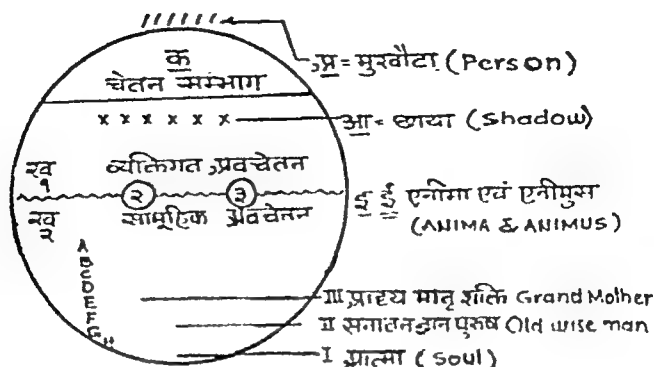 क
चेतन सम्भाग
अ = मुखौटा (Person)
x x x x x x
आ = छाया (Shadow)
ख १
व्यक्तिगत अवचेतन
२ ३
इ ई एनीमा एवं एनीमुस
(ANIMA & ANIMUS)
ख २
सामूहिक अवचेतन
A
B
C
D
E
F
G H
III प्राद्य मातृ शक्ति Grand Mother
II सनातन ज्ञान पुरुष Old wise man
I आत्मा (Soul)